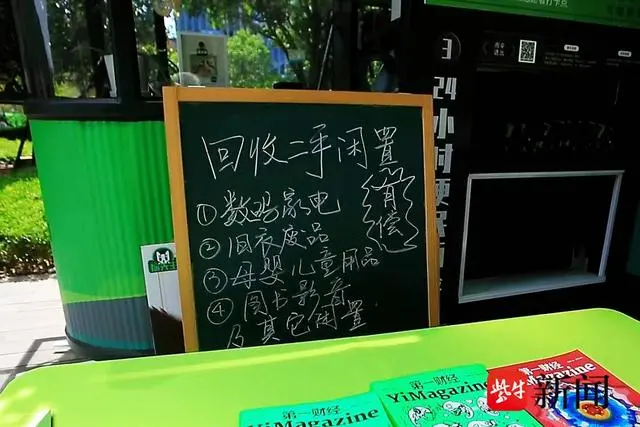 回收二手闲置
①数码家电
②旧衣废品
③母婴儿童用品
④图书影音
及其它闲置
有偿
24小时便民
第一财经
YiMagazine
第一财经
YiMagazine
第一财经
YiMagazine
紫牛新闻